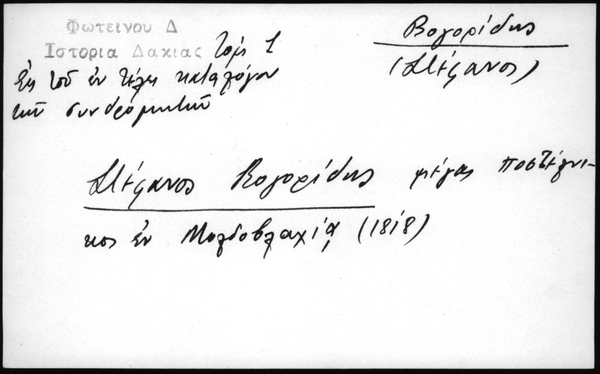 Φωτεινου Δ
Ιστορια Δακιας Τομ 1
Εκ τοῦ ἐν τέλει καταλόγου
τῶν συνδρομητῶν
Βογορίδης
(Στέφανος)
Στέφανος Βογορίδης μέγας ποστέλνι-
κος ἐν Μολδοβλαχίᾳ (1818)